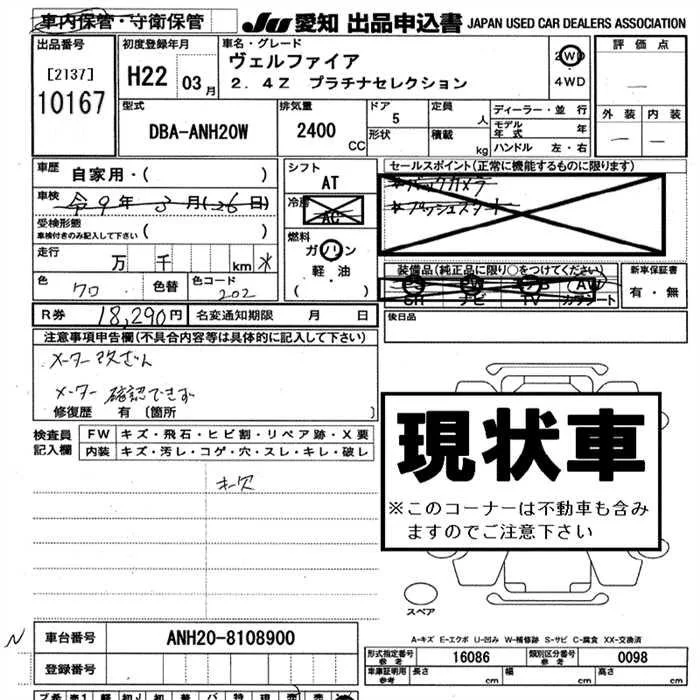 車内保管・守衛保管
JU 愛知 出品申込書 JAPAN USED CAR DEALERS ASSOCIATION
出品番号
[2137]
10167
初度登録年月
H22 03 月
車名・グレード
ヴェルファイア
2.4Z プラチナセレクション
2WD
4WD
評価点
—
外装 内装
— —
型式
DBA-ANH20W
排気量
2400 CC
ドア
5
形状
定員
人
積載
kg
ディーラー・並行
モデル年式 年
ハンドル 左・右
車歴
自家用・( )
車検
令9年3月(26日)
受検形態
車検付きのみ記入して下さい ( )
走行
万 千 km *
色
クロ
色替
色コード
202
シフト
AT
冷房
AC
燃料
ガソリン
軽・油
( )
セールスポイント(正常に機能するものに限ります)
*バックカメラ
*プッシュスタート
装備品(純正品に限り○をつけてください)
SR ナビ TV カワシート
AW
新車保証書
有・無
R券 18,290円
名変通知期限 月 日
後日品
注意事項申告欄(不具合内容等は具体的に記入して下さい)
メーター改ざん
メーター確認できず
修復歴 有 〔箇所 〕
検査員記入欄
FW キズ・飛石・ヒビ割・リペア跡・X要
内装 キズ・汚レ・コゲ・穴・スレ・キレ・破レ
キー欠
現状車
※このコーナーは不動車も含み
ますのでご注意下さい
スペア
A-キズ E-エクボ U-凹み W-補修跡 S-サビ C-腐食 XX-交換済
N
車台番号 ANH20-8108900
登録番号
形式指定番号 参考 16086
類別区分番号 参考 0098
車庫証明用 参考 長さ cm 幅 cm 高さ cm